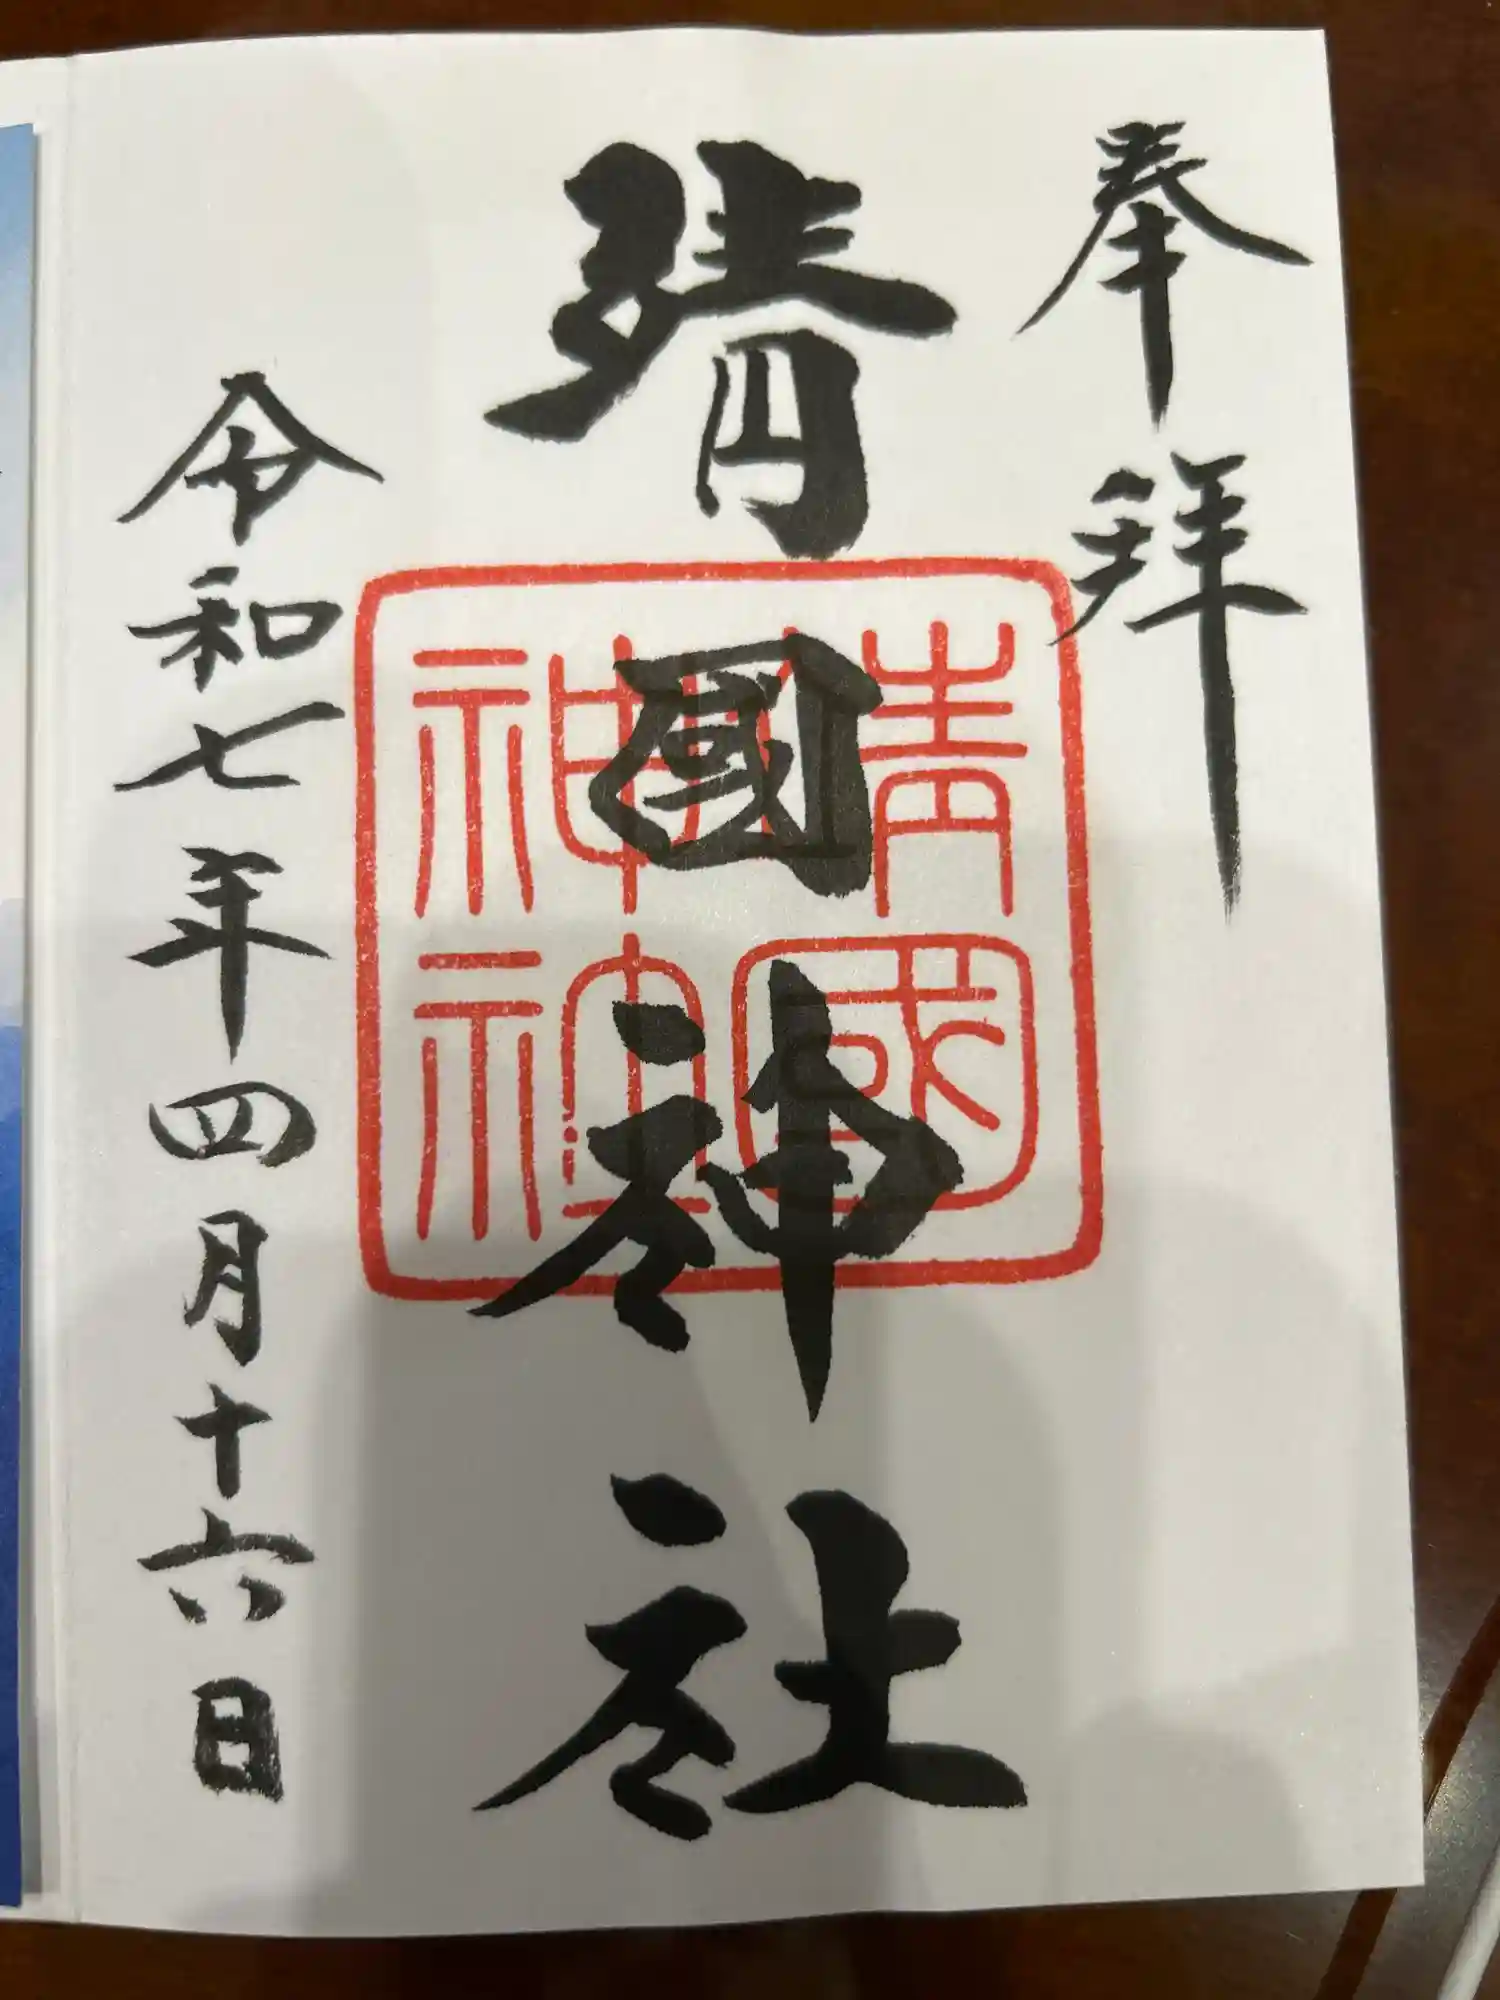 奉拜
靖國神社
靖國
神社
令和七年四月十六日